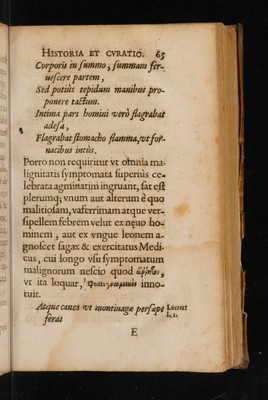 HISTORIA ET CVRATIO. 65
Corporis in summo, summam fer-
uescere partem,
Sed potiùs tepidum manibus pro-
ponere tactum.
Intima pars homini verò flagrabat
adesa,
Flagrabat stomacho flamma, vt for-
nacibus intùs.
Porro non requiritur vt omnia ma-
lignitatis symptomata superiùs ce-
lebrata agminatim ingruant, sat est
plerumq; vnum aut alterum è quo
malitiosam, vaferrimam atque ver-
sipellem febrem velut ex neuo ho-
minem, aut ex vngue leonem a-
gnoscet sagax & exercitatus Medi-
cus, cui longo vsu symptomatum
malignorum nescio quod ἄῤῥητον,
vt ita loquar, inno-
tuit.
Atque canes vt montiuagæ persæpe
feraï
Lucret
E